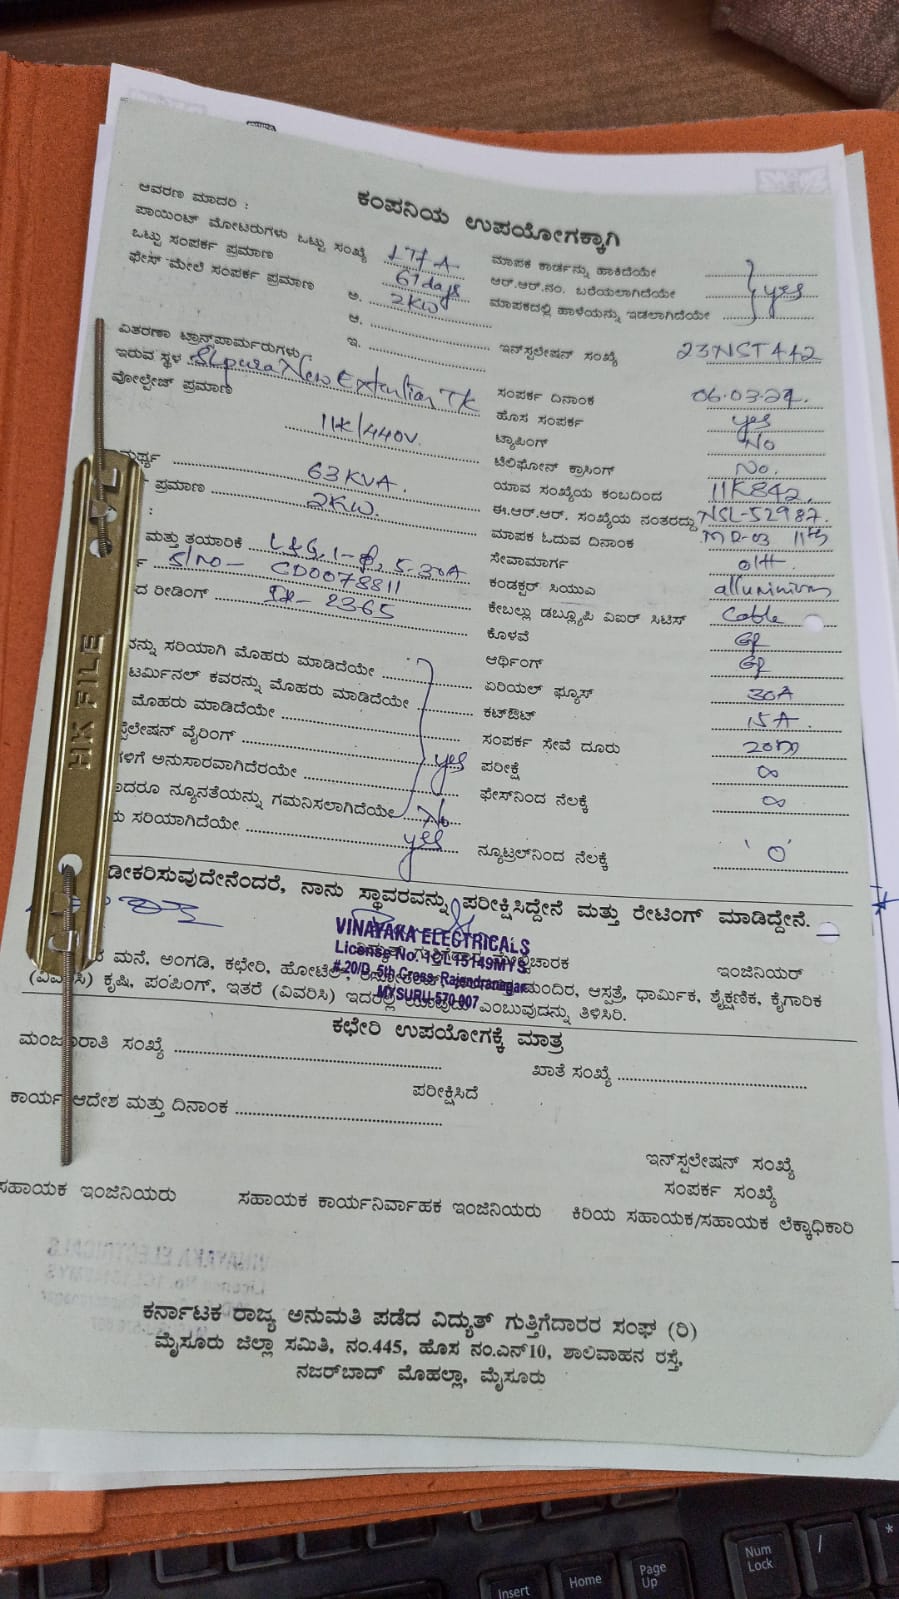 ಕಂಪನಿಯ ಉಪಯೋಗಕ್ಕಾಗಿ
ಆವರಣ ಮಾದರಿ :
ಪಾಯಿಂಟ್ ಮೋಟರುಗಳು ಒಟ್ಟು ಸಂಖ್ಯೆ
ಒಟ್ಟು ಸಂಪರ್ಕ ಪ್ರಮಾಣ 61 days
ಫೇಸ್ ಮೇಲೆ ಸಂಪರ್ಕ ಪ್ರಮಾಣ ಅ. 2KW
ಆ.
ಇ.
ವಿತರಣಾ ಟ್ರಾನ್ಸ್‌ಫಾರ್ಮರುಗಳು
ಇರುವ ಸ್ಥಳ New Extention TK
ವೋಲ್ಟೇಜ್ ಪ್ರಮಾಣ
11K/440V.
63KVA.
ಪ್ರಮಾಣ 2KW.
:
ಮತ್ತು ತಯಾರಿಕೆ L&G, 1-φ, 5-30A
S/No- CD0078811
ದ ರೀಡಿಂಗ್ 2365
ವನ್ನು ಸರಿಯಾಗಿ ಮೊಹರು ಮಾಡಿದೆಯೇ
ಟರ್ಮಿನಲ್ ಕವರನ್ನು ಮೊಹರು ಮಾಡಿದೆಯೇ
ಮೊಹರು ಮಾಡಿದೆಯೇ
ಲೇಷನ್ ವೈರಿಂಗ್
ಗಳಿಗೆ ಅನುಸಾರವಾಗಿದೆರಯೇ yes
ದಾದರೂ ನ್ಯೂನತೆಯನ್ನು ಗಮನಿಸಲಾಗಿದೆಯೇ No
ಸರಿಯಾಗಿದೆಯೇ yes
ಮಾಪಕ ಕಾರ್ಡನ್ನು ಹಾಕಿದೆಯೇ
ಆರ್.ಆರ್.ನಂ. ಬರೆಯಲಾಗಿದೆಯೇ yes
ಮಾಪಕದಲ್ಲಿ ಹಾಳೆಯನ್ನು ಇಡಲಾಗಿದೆಯೇ
ಇನ್‌ಸ್ಟಲೇಷನ್ ಸಂಖ್ಯೆ 23NST442
ಸಂಪರ್ಕ ದಿನಾಂಕ 06.03.24.
ಹೊಸ ಸಂಪರ್ಕ yes
ಟ್ಯಾಪಿಂಗ್ No
ಟೆಲಿಫೋನ್ ಕ್ರಾಸಿಂಗ್ No.
ಯಾವ ಸಂಖ್ಯೆಯ ಕಂಬದಿಂದ 11K842.
ಈ.ಆರ್.ಆರ್. ಸಂಖ್ಯೆಯ ನಂತರದ್ದು NSL-52987.
ಮಾಪಕ ಓದುವ ದಿನಾಂಕ MD-03 11th
ಸೇವಾಮಾರ್ಗ O/H.
ಕಂಡಕ್ಟರ್ ಸಿಯುಎ alluminium
ಕೇಬಲ್ಲು ಡಬ್ಲ್ಯೂಪಿ ವಿಐಆರ್ ಸಿಟಿಸ್ Cable
ಕೊಳವೆ GI
ಅರ್ಥಿಂಗ್ GI
ಏರಿಯಲ್ ಫ್ಯೂಸ್ 30A
ಕಟ್‌ಔಟ್ 15A.
ಸಂಪರ್ಕ ಸೇವೆ ದೂರು 20m
ಪರೀಕ್ಷೆ ∞
ಫೇಸ್‌ನಿಂದ ನೆಲಕ್ಕೆ ∞
ನ್ಯೂಟ್ರಲ್‌ನಿಂದ ನೆಲಕ್ಕೆ '0'
ಡೀಕರಿಸುವುದೇನೆಂದರೆ, ನಾನು ಸ್ಥಾವರವನ್ನು ಪರೀಕ್ಷಿಸಿದ್ದೇನೆ ಮತ್ತು ರೇಟಿಂಗ್ ಮಾಡಿದ್ದೇನೆ.
VINAYAKA ELECTRICALS
License No. 1CL15149MYS
# 20/D, 5th Cross, Rajendranagar
MYSURU-570 007
ಇಂಜಿನಿಯರ್
ಮನೆ, ಅಂಗಡಿ, ಕಛೇರಿ, ಮಂದಿರ, ಆಸ್ಪತ್ರೆ, ಧಾರ್ಮಿಕ, ಶೈಕ್ಷಣಿಕ, ಕೈಗಾರಿಕ
(ವಿವರಿಸಿ) ಕೃಷಿ, ಪಂಪಿಂಗ್, ಇತರೆ (ವಿವರಿಸಿ) ಇದರಲ್ಲಿ ಯಾವುದು ಎಂಬುವುದನ್ನು ತಿಳಿಸಿರಿ.
ಕಛೇರಿ ಉಪಯೋಗಕ್ಕೆ ಮಾತ್ರ
ಮಂಜೂರಾತಿ ಸಂಖ್ಯೆ ಖಾತೆ ಸಂಖ್ಯೆ
ಪರೀಕ್ಷಿಸಿದೆ
ಕಾರ್ಯ ಆದೇಶ ಮತ್ತು ದಿನಾಂಕ
ಇನ್‌ಸ್ಟಲೇಷನ್ ಸಂಖ್ಯೆ
ಸಂಪರ್ಕ ಸಂಖ್ಯೆ
ಸಹಾಯಕ ಇಂಜಿನಿಯರು ಸಹಾಯಕ ಕಾರ್ಯನಿರ್ವಾಹಕ ಇಂಜಿನಿಯರು ಕಿರಿಯ ಸಹಾಯಕ/ಸಹಾಯಕ ಲೆಕ್ಕಾಧಿಕಾರಿ
ಕರ್ನಾಟಕ ರಾಜ್ಯ ಅನುಮತಿ ಪಡೆದ ವಿದ್ಯುತ್ ಗುತ್ತಿಗೆದಾರರ ಸಂಘ (ರಿ)
ಮೈಸೂರು ಜಿಲ್ಲಾ ಸಮಿತಿ, ನಂ.445, ಹೊಸ ನಂ.ಎನ್10, ಶಾಲಿವಾಹನ ರಸ್ತೆ,
ನಜರ್‌ಬಾದ್ ಮೊಹಲ್ಲಾ, ಮೈಸೂರು
HK FILE
Insert
Home
Page Up
Num Lock
/
*